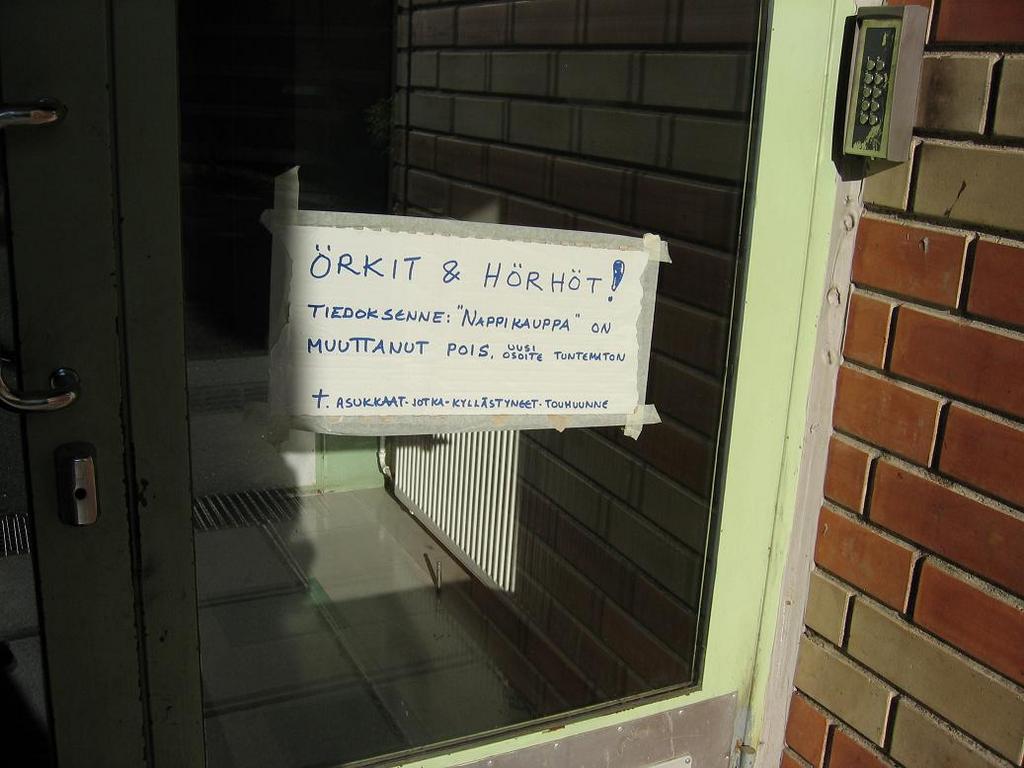 ÖRKIT & HÖRHÖT!
TIEDOKSENNE: "NAPPIKAUPPA" ON
MUUTTANUT POIS, UUSI OSOITE TUNTEMATON
T. ASUKKAAT-JOTKA-KYLLÄSTYNEET-TOUHUUNNE